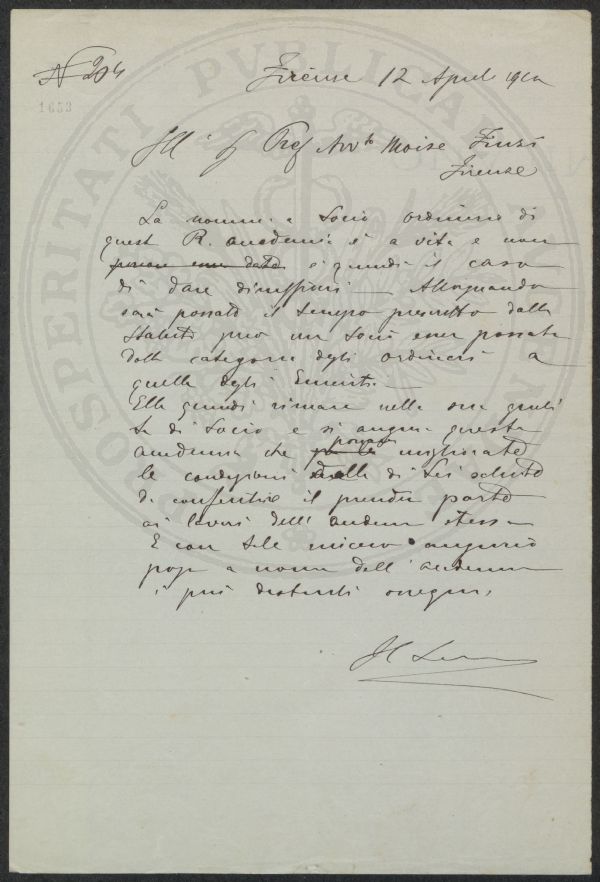 N 204
1653
Firenze 12 Aprile
Ill Sig Prof Avvto Moise Finzi
Firenze
La nomina a Socio ordinario di
quest R. accademia è a vita e non
è quindi il caso
di dare dimissioni Allorquando
sarà passato il tempo prescritto dallo
Statuto può un socio esser passato
dalla categoria degli ordinari a
quella degli Emeriti
Ella quindi rimane nella sua quali
tà di Socio e si augura questa
accademia che possano migliorate
le condizioni della di Lei salute
Le consentire il prender parte
ai lavori dell' accademia stessa
E con tale sincero augurio
porgo a nome dell' accademia
i più distinti ossequi
Il
PROSPERITATI PVBLICAE